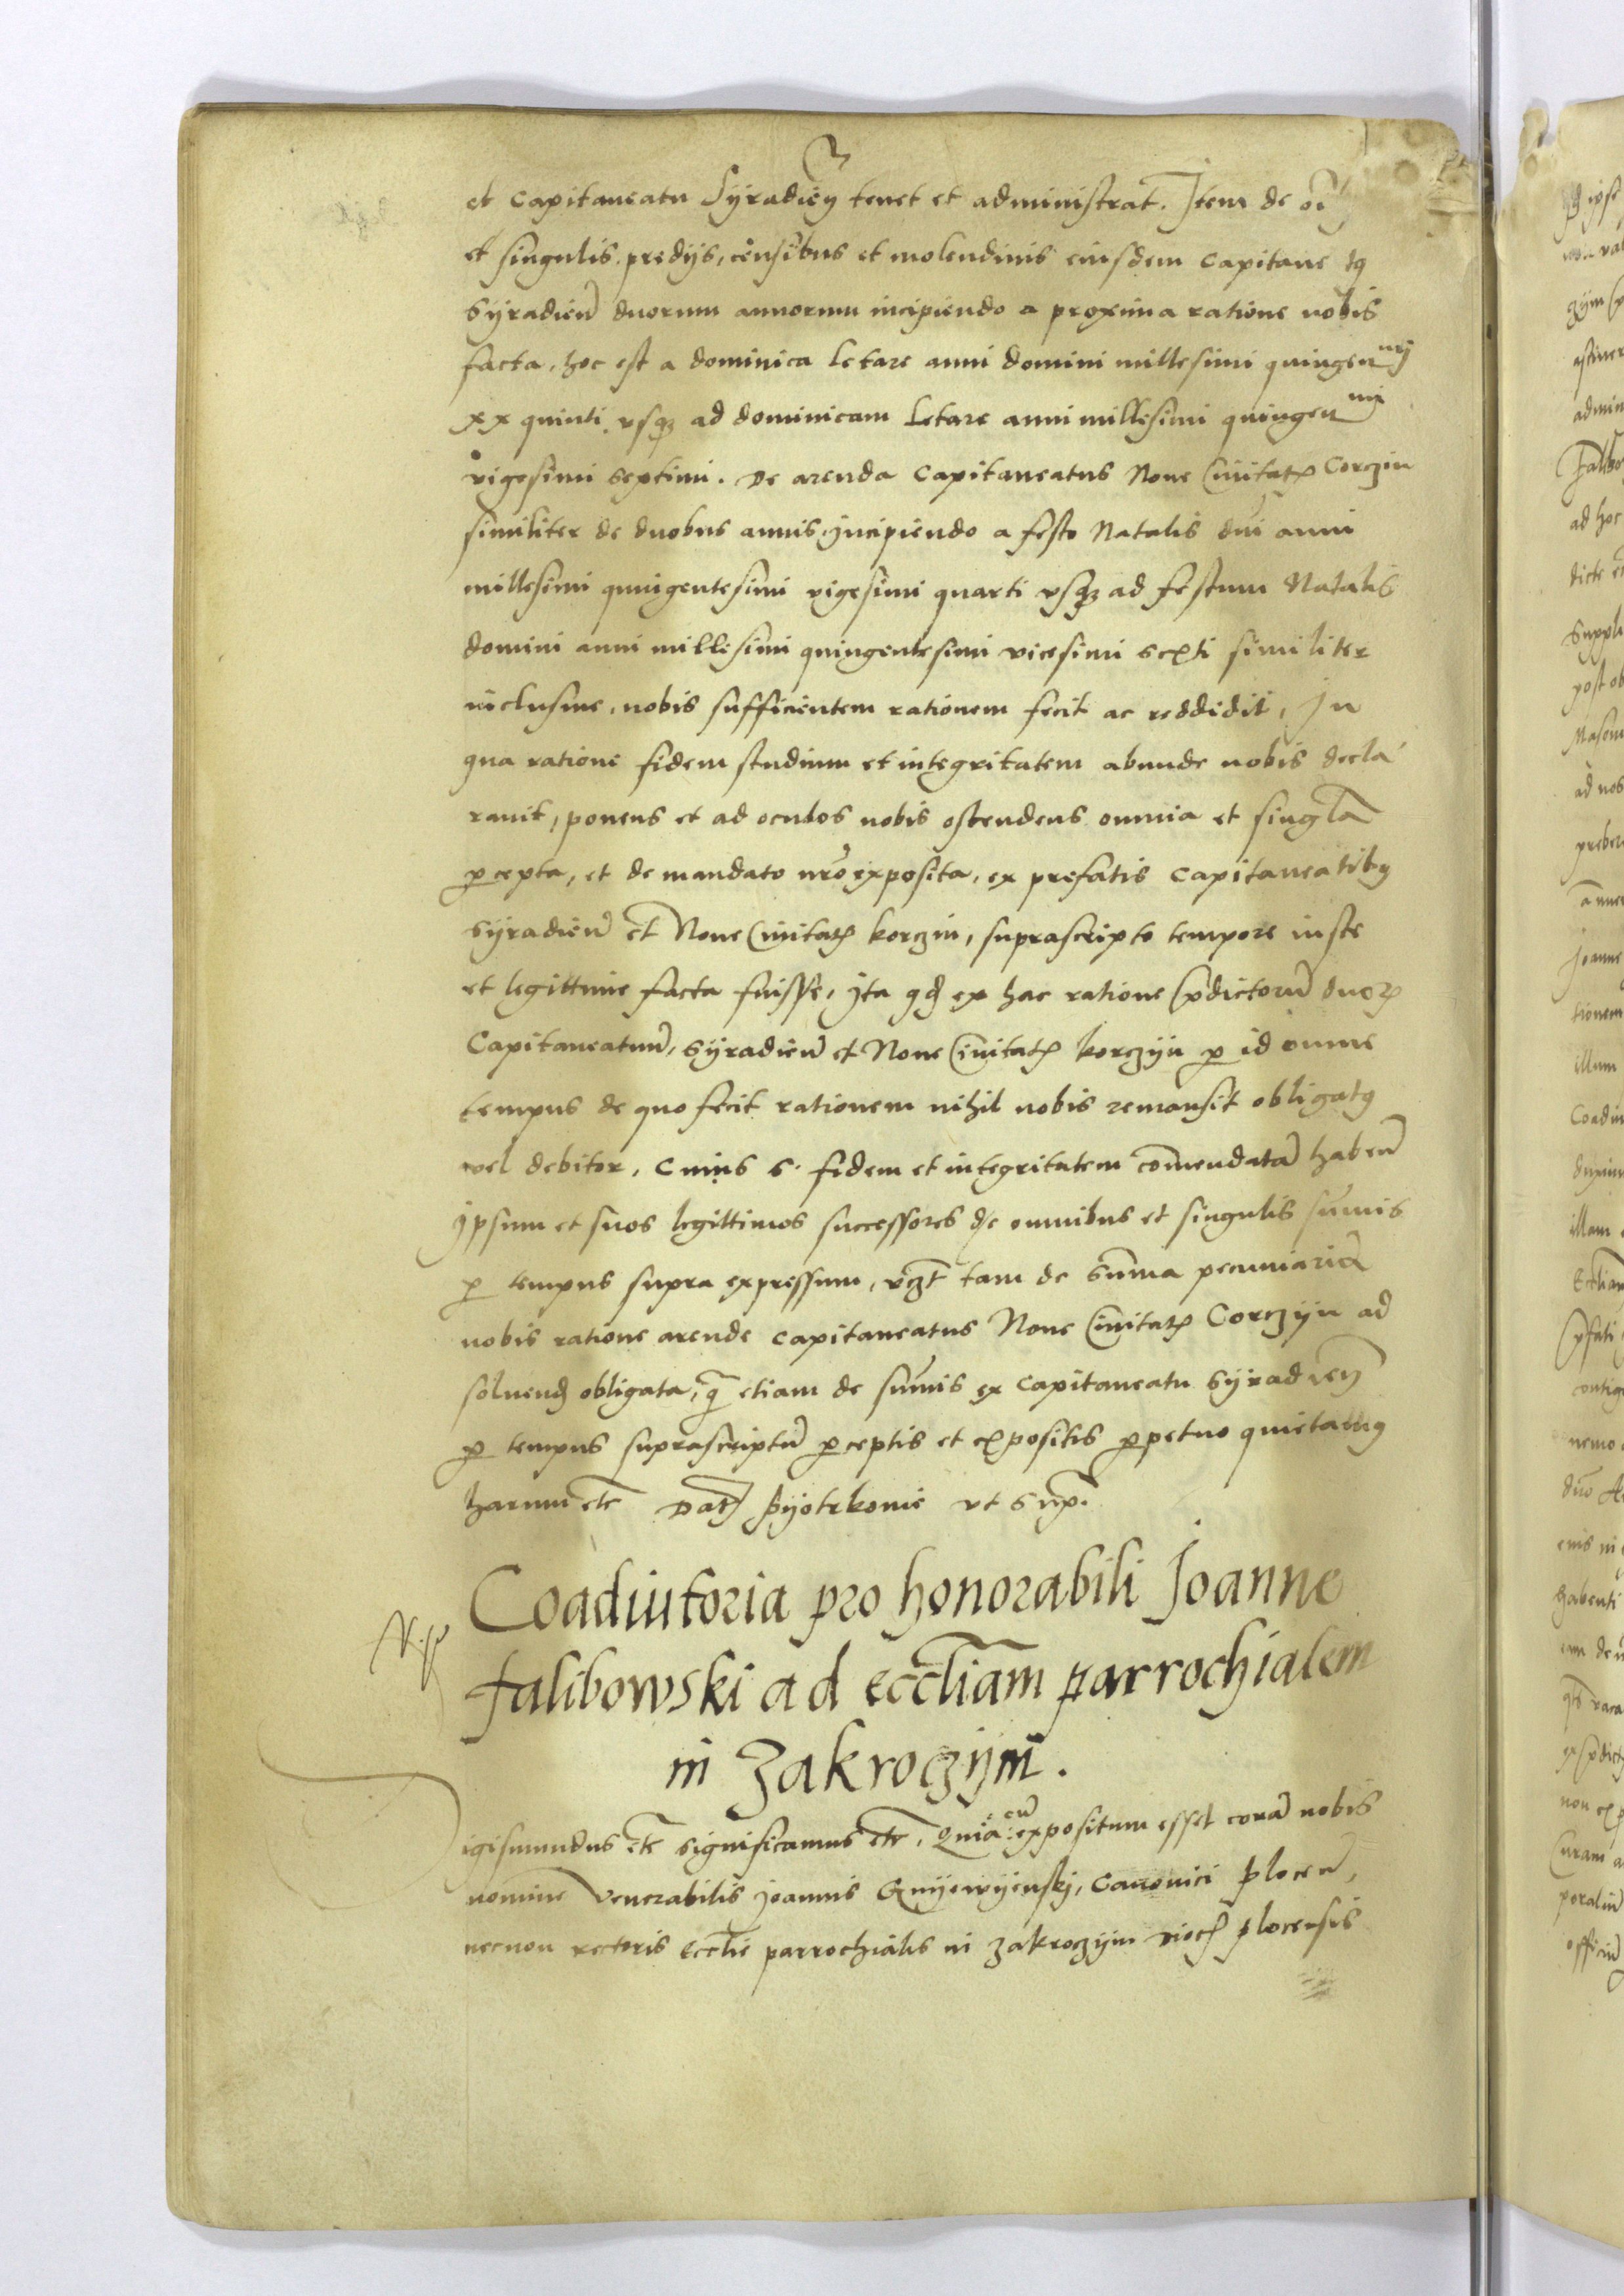 et Capitaneatu Syradieñ tenet et administrat. Item de oi
et singulis predijs, censibus et molendinis eiusdem Capitaneatꝰ
Syradieñ duorum annorum incipiendo a proxima ratione nobis
facta, hoc est a dominica Letare anni domini millesimi quingenmj
xx quinti vsqꝫ ad dominicam Letare anni millesimi quingenmi
vigesimi septimi. De arenda Capitaneatus Noue Ciuitatꝭ Corczin
similiter de duobus annis, jncipiendo a festo Natalis dñi anni
millesimi quingentesimi vigesimi quarti vsqꝫ ad festum Natalis
domini anni millesimi quingentesimi vicesimi sexti similiter
inclusiue, nobis sufficientem rationem fecit ac reddidit, In
qua ratione fidem studium et integritatem abunde nobis decla
rauit, ponens et ad oculos nobis ostendens omnia et singl̃a
ꝑcepta, et de mandato nr̃o exposita, ex prefatis Capitaneatibꝰ
Syradieñ et Noue Ciuitatꝭ korczin, suprascripto tempore iuste
et legittime facta fuisse, Ita qđ ex hac ratione p̃dictorũ duoꝝ
Capitaneatuũ, Syradieñ et Noue Ciuitatꝭ korczyn ꝑ id omne
tempus de quo fecit rationem nihil nobis remansit obligatꝰ
vel debitor, Cuius s. fidem et integritatem com̃endatã habeñ
Ipsum et suos legittimos successores de omnibus et singulis sum̃is
ꝑ tempus supra expressum, vcꝫt tam de sum̃a pecuniaria
nobis ratione arende Capitaneatus Noue Ciuitatꝭ Corczyn ad
soluenđ obligata, q̃ etiam de sum̃is ex Capitaneatu Syradieñ
ꝑ tempus suprascriptũ ꝑceptis et expositis ꝑpetuo quietamꝰ
harum etc̃ Dat̃ Pyotrkouie vt sup̃.
Coadiutoria pro honorabili Joanne
falibowski ad eccl̃iam parrochialem
in Zakroczym.
igismundus etc̃ significamus etc̃. Quia cũ expositum esset corã nobis
nomine Venerabilis Joannis Gnyewyenskj, Canonici Ploceñ,
necnon rectoris Eccl̃ie parrochialis in Zakroczym dioc̃ plocensis